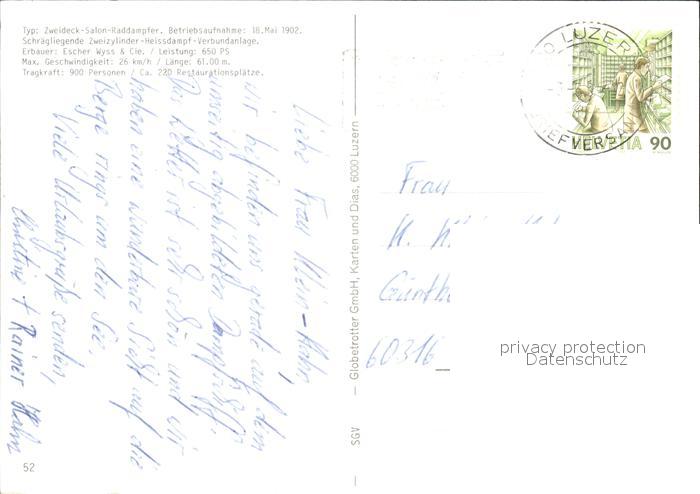 Typ: Zweideck-Salon-Raddampfer. Betriebsaufnahme: 18.Mai 1902.
Schrägliegende Zweizylinder-Heissdampf-Verbundanlage.
Erbauer: Escher Wyss & Cie. / Leistung: 650 PS
Max. Geschwindigkeit: 26 km/h / Länge: 61.00 m.
Tragkraft: 900 Personen / Ca. 220 Restaurationsplätze.
Liebe Frau Klein-Hahn,
wir befinden uns gerade auf dem
umseitig abgebildeten Dampfschiff.
Das Wetter ist sehr schön und wir
haben eine wunderbare Sicht auf die
Berge rings um den See.
Viele Urlaubsgrüße senden,
Christine + Rainer Hahn
52
SGV — Globetrotter GmbH, Karten und Dias, 6000 Luzern
LUZERN
BRIEFVERSAND
HELVETIA 90
Frau
K. K.
Günth
60316
privacy protection
Datenschutz